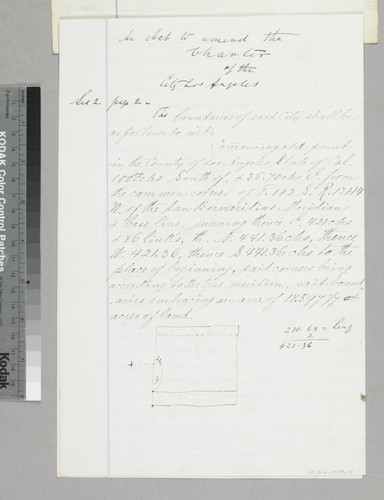 An Act to amend the
Charter
of the
City Los Angeles
Sec 2. page 2.
The boundaries of said City shall be
as follows to wit:
Commencing at a point
in the County of Los Angeles State of Cal.
100 chs South of & 36.70 chs E. from
the common corner of T. 1 & 2 S. R. 13 & 14
W. of the San Bernardino Meridian
& base line, running thence E 421 chs
& 36 links, th. N. 441.36 chs, thence
W. 421.36, thence S 441.36 chs to the
place of beginning, said corners being
according to the true meridian, said bound
aries embracing an area of
acres of land.
210.68 = leng
2
421-36
KODAK Color Control Patches
Kodak